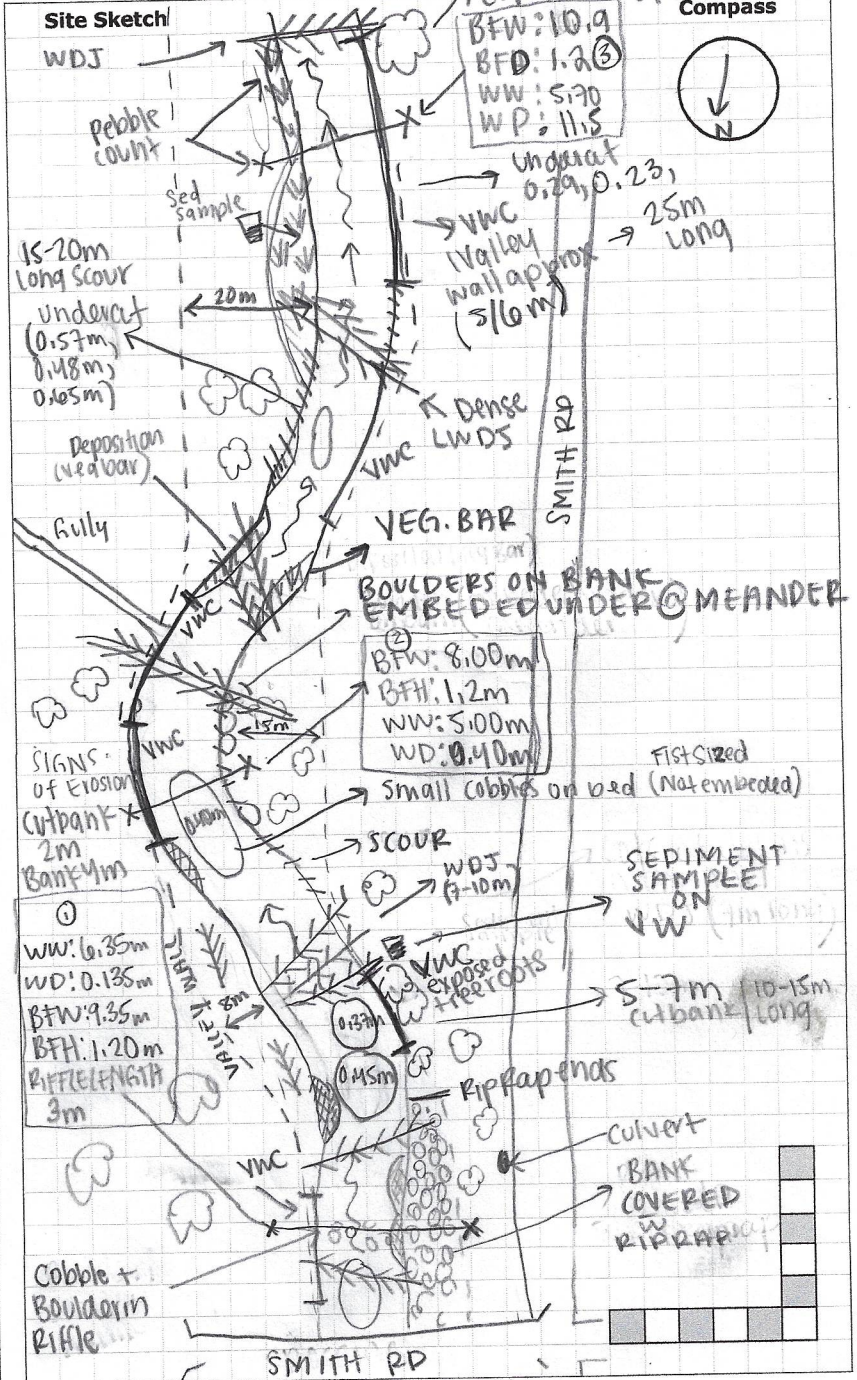 Site Sketch
Compass
N
WDJ
BFW: 10.9
BFD: 1.2 ③
WW: 5.70
WP: 11.5
Pebble
count
undercut
0.29, 0.23,
Sed
sample
VWC
(Valley
wall approx
(5/6m)
25m
Long
15-20m
Long Scour
undercut
(0.57m,
0.48m,
0.65m)
20m
Dense
LWDS
VWC
SMITH RD
Deposition
(veg bar)
Gully
VEG. BAR
BOULDERS ON BANK
EMBEDED UNDER @ MEANDER
VWC
②
BFW: 8.00m
BFH: 1.2m
WW: 5.00m
WD: 0.40m
15m
VWC
SIGNS
of Erosion
Cutbank
2m
Bank 4m
0.40m
Fist Sized
Small cobbles on bed (Not embeded)
SCOUR
WDJ
(7-10m)
SEDIMENT
SAMPLE
ON
VW
①
WW: 6.35m
WD: 0.135m
BFW: 9.35m
BFH: 1.20m
RIFFLE LENGTH
3m
VALLEY WALL
8m
VWC
exposed
tree roots
0.37m
5-7m / 10-15m
cutbank / Long
0.45m
RipRap ends
VWC
Culvert
BANK
COVERED
W
RIPRAP
Cobble +
Boulder in
Riffle
SMITH RD